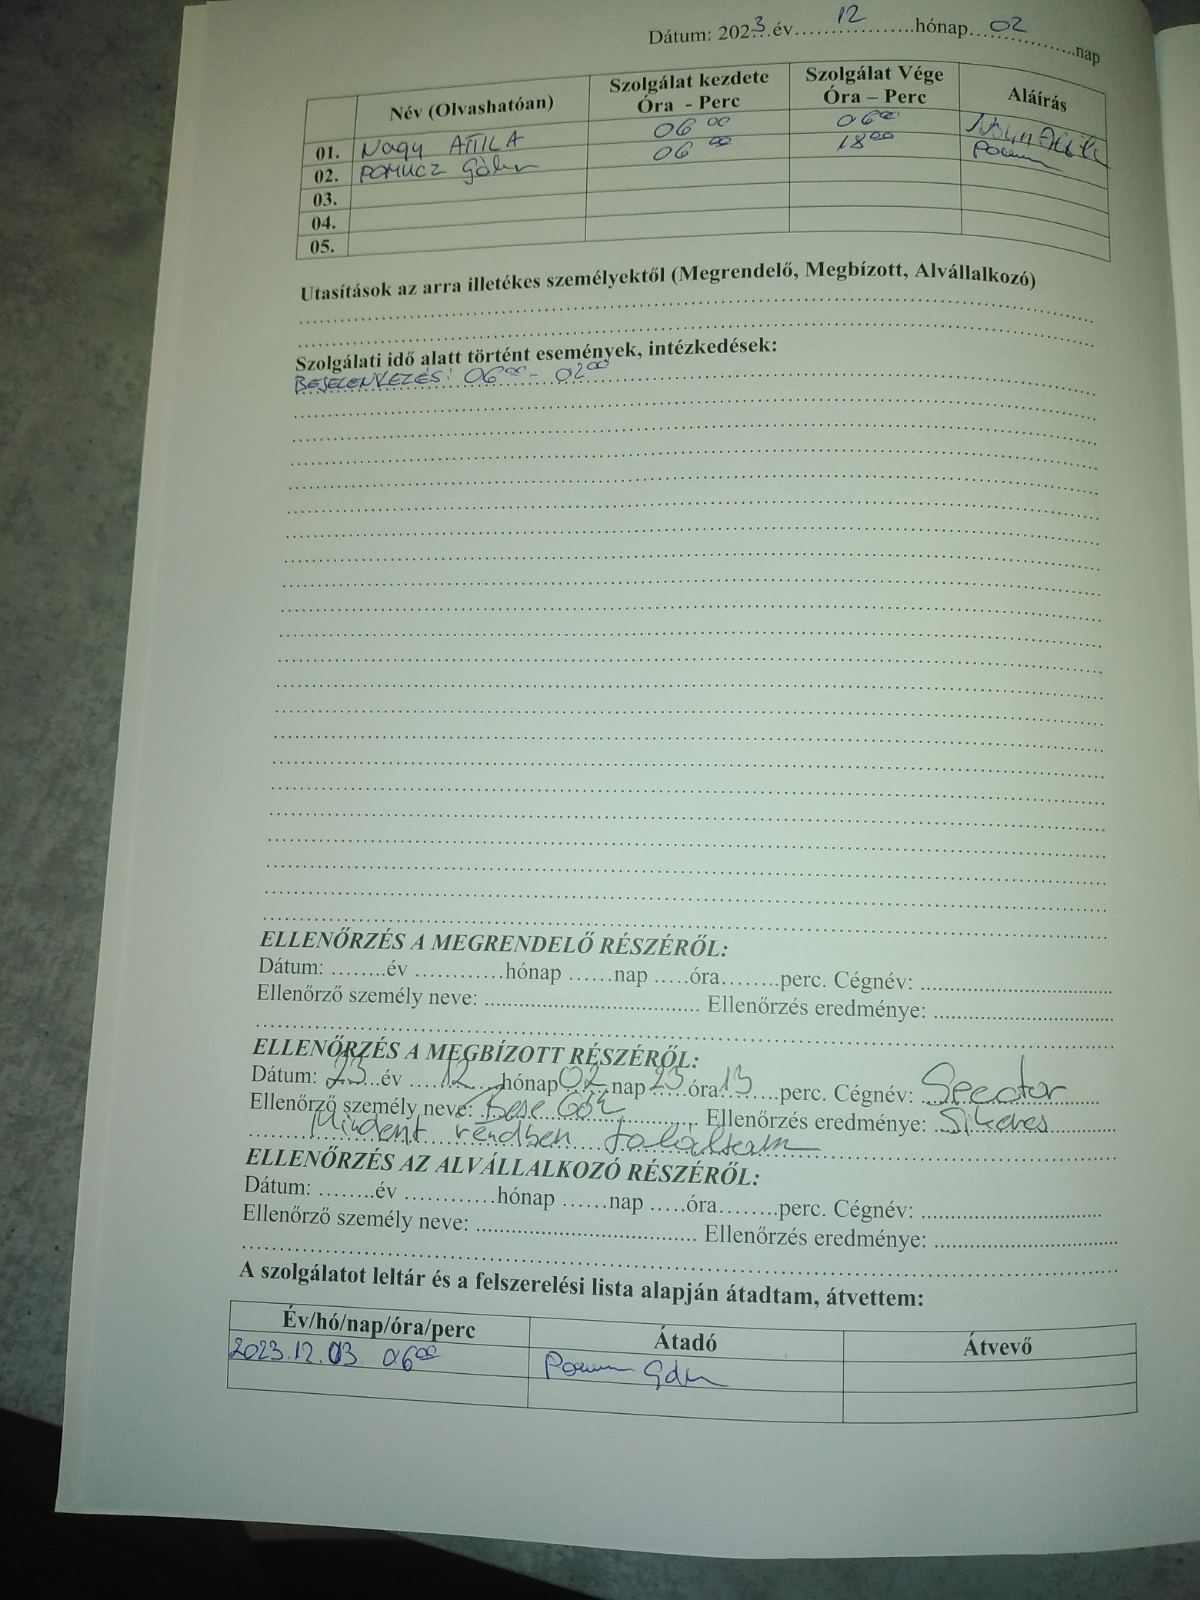 Dátum: 2023 év 12 hónap 02 nap
Név (Olvashatóan) Szolgálat kezdete Óra - Perc Szolgálat Vége Óra – Perc Aláírás
01. Nagy ATTILA 06 00 06 00 Nagy Attila
02. POMUCZ Gábor 06 00 18 00
03.
04.
05.
Utasítások az arra illetékes személyektől (Megrendelő, Megbízott, Alvállalkozó)
Szolgálati idő alatt történt események, intézkedések:
BEJELENKEZÉS: 06 00 - 02 00
ELLENŐRZÉS A MEGRENDELŐ RÉSZÉRŐL:
Dátum: ........év ............hónap ......nap .....óra........perc. Cégnév: ..............................
Ellenőrző személy neve: .................................. Ellenőrzés eredménye: ............................
ELLENŐRZÉS A MEGBÍZOTT RÉSZÉRŐL:
Dátum: 23 év 12 hónap 02 nap 23 óra 13 perc. Cégnév:
Ellenőrző személy neve: Bese Ellenőrzés eredménye: Sikeres
Mindent rendben találtam
ELLENŐRZÉS AZ ALVÁLLALKOZÓ RÉSZÉRŐL:
Dátum: ........év ............hónap ......nap .....óra........perc. Cégnév: ............................
Ellenőrző személy neve: .................................. Ellenőrzés eredménye: ............................
A szolgálatot leltár és a felszerelési lista alapján átadtam, átvettem:
Év/hó/nap/óra/perc Átadó Átvevő
2023.12.03 06 00